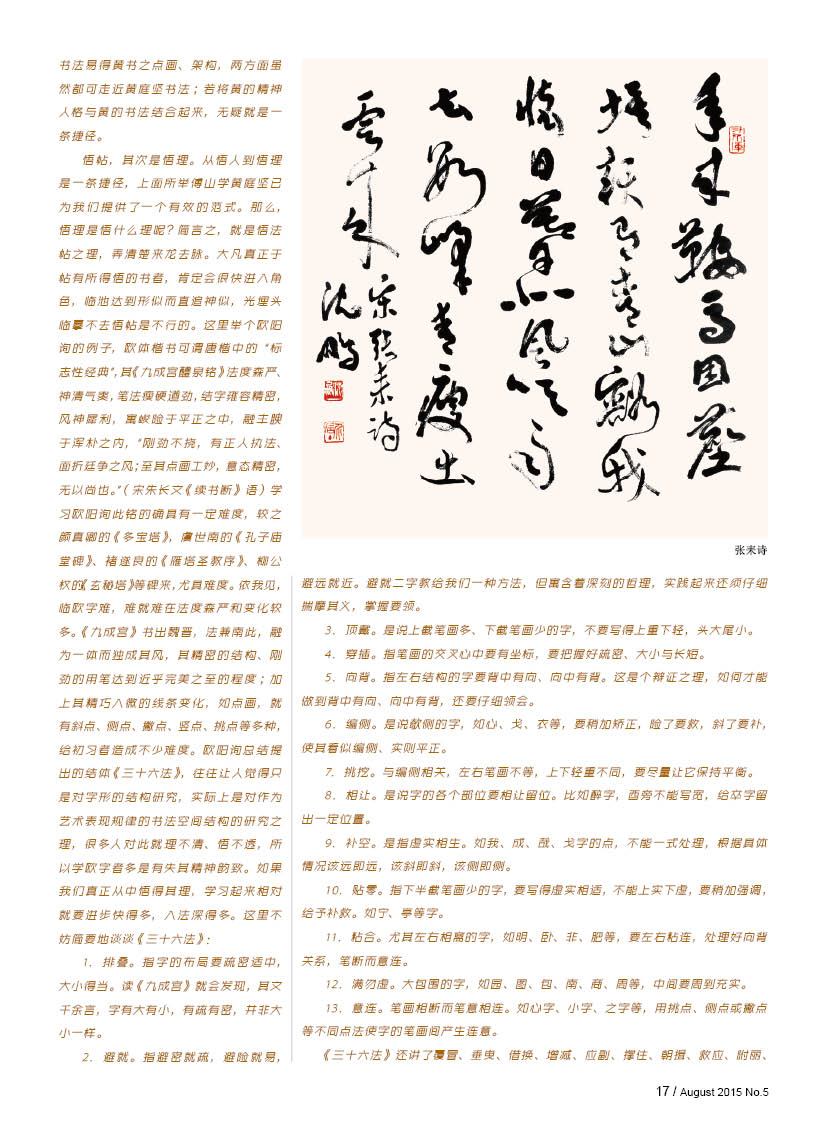 书法易得黄书之点画、架构，两方面虽
然都可走近黄庭坚书法；若将黄的精神
人格与黄的书法结合起来，无疑就是一
条捷径。
悟帖，其次是悟理。从悟人到悟理
是一条捷径，上面所举傅山学黄庭坚已
为我们提供了一个有效的范式。那么，
悟理是悟什么理呢？简言之，就是悟法
帖之理，弄清楚来龙去脉。大凡真正于
帖有所得悟的书者，肯定会很快进入角
色，临池达到形似而直追神似，光埋头
临摹不去悟帖是不行的。这里举个欧阳
询的例子，欧体楷书可谓唐楷中的“标
志性经典”，其《九成宫醴泉铭》法度森严、
神清气爽，笔法瘦硬遒劲，结字雍容精密，
风神犀利，寓峻险于平正之中，融丰腴
于浑朴之内，“刚劲不挠，有正人执法、
面折廷争之风；至其点画工妙，意态精密，
无以尚也。”（宋朱长文《续书断》语）学
习欧阳询此铭的确具有一定难度，较之
颜真卿的《多宝塔》，虞世南的《孔子庙
堂碑》、褚遂良的《雁塔圣教序》、柳公
权的《玄秘塔》等碑来，尤其难度。依我见，
临欧字难，难就难在法度森严和变化较
多。《九成宫》书出魏晋，法兼南北，融
为一体而独成其风，其精密的结构、刚
劲的用笔达到近乎完美之至的程度；加
上其精巧入微的线条变化，如点画，就
有斜点、侧点、撇点、竖点、挑点等多种，
给初习者造成不少难度。欧阳询总结提
出的结体《三十六法》，往往让人觉得只
是对字形的结构研究，实际上是对作为
艺术表现规律的书法空间结构的研究之
理，很多人对此就理不清、悟不透，所
以学欧字者多是有失其精神韵致。如果
我们真正从中悟得其理，学习起来相对
就要进步快得多，入法深得多。这里不
妨简要地谈谈《三十六法》：
1．排叠。指字的布局要疏密适中，
大小得当。读《九成宫》就会发现，其文
千余言，字有大有小，有疏有密，并非大
小一样。
2．避就。指避密就疏，避险就易，
年来鞍马困尘
埃赖有青山豁我
怀日暮北风吹雨
去数峰青瘦出
云来
宋张耒诗
沈鹏
张耒诗
避远就近。避就二字教给我们一种方法，但寓含着深刻的哲理，实践起来还须仔细
揣摩其义，掌握要领。
3．顶戴。是说上截笔画多、下截笔画少的字，不要写得上重下轻，头大尾小。
4．穿插。指笔画的交叉心中要有坐标，要把握好疏密、大小与长短。
5．向背。指左右结构的字要背中有向、向中有背。这是个辩证之理，如何才能
做到背中有向、向中有背，还要仔细领会。
6．偏侧。是说欹侧的字，如心、戈、衣等，要稍加矫正，险了要救，斜了要补，
使其看似偏侧、实则平正。
7．挑㧐。与偏侧相关，左右笔画不等，上下轻重不同，要尽量让它保持平衡。
8．相让。是说字的各个部位要相让留位。比如醉字，酉旁不能写宽，给卒字留
出一定位置。
9．补空。是指虚实相生。如我、成、哉、戈字的点，不能一式处理，根据具体
情况该远即远，该斜即斜，该侧即侧。
10．贴零。指下半截笔画少的字，要写得虚实相适，不能上实下虚，要稍加强调，
给予补救。如宁、亭等字。
11．粘合。尤其左右相离的字，如明、卧、非、肥等，要左右粘连，处理好向背
关系，笔断而意连。
12．满勿虚。大包围的字，如园、图、包、南、商、周等，中间要周到充实。
13．意连。笔画相断而笔意相连。如心字、小字、之字等，用挑点、侧点或撇点
等不同点法使字的笔画间产生连意。
《三十六法》还讲了覆冒、垂曳、借换、增减、应副、撑住、朝揖、救应、附丽、
17 / August 2015 No.5